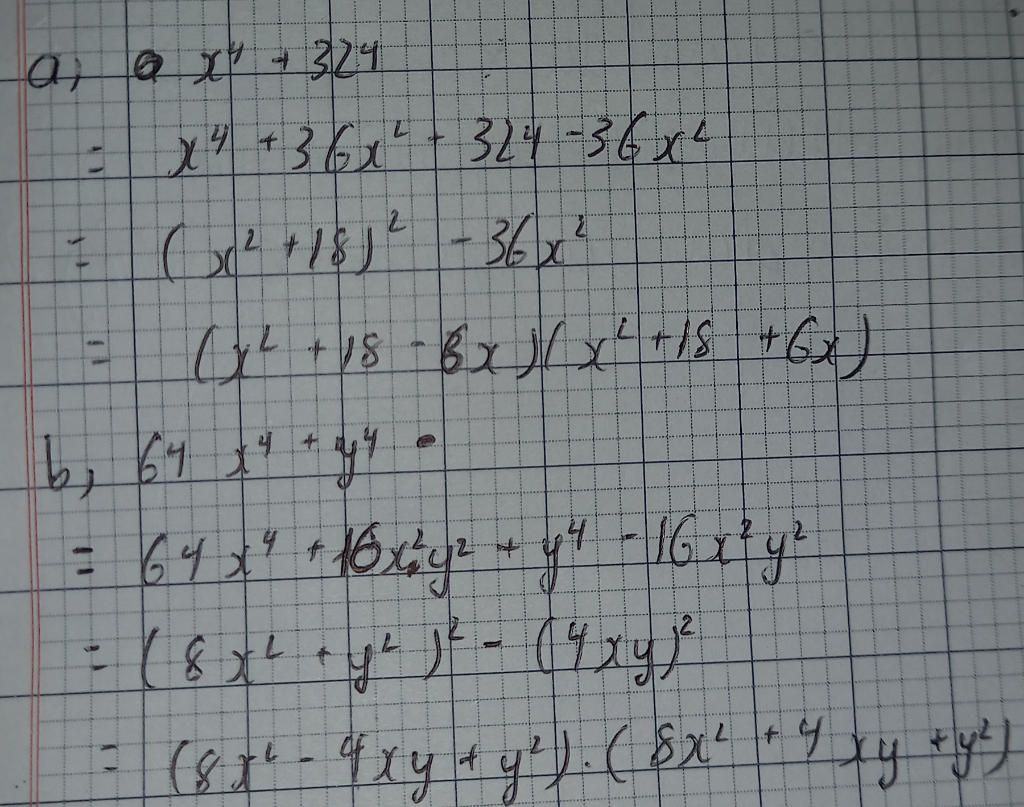 a, x⁴ + 324
= x⁴ + 36x² + 324 - 36x²
= (x² + 18)² - 36x²
= (x² + 18 - 6x)(x² + 18 + 6x)
b, 64 x⁴ + y⁴
= 64x⁴ + 16x²y² + y⁴ - 16x²y²
= (8x² + y²)² - (4xy)²
= (8x² - 4xy + y²).(8x² + 4xy + y²)